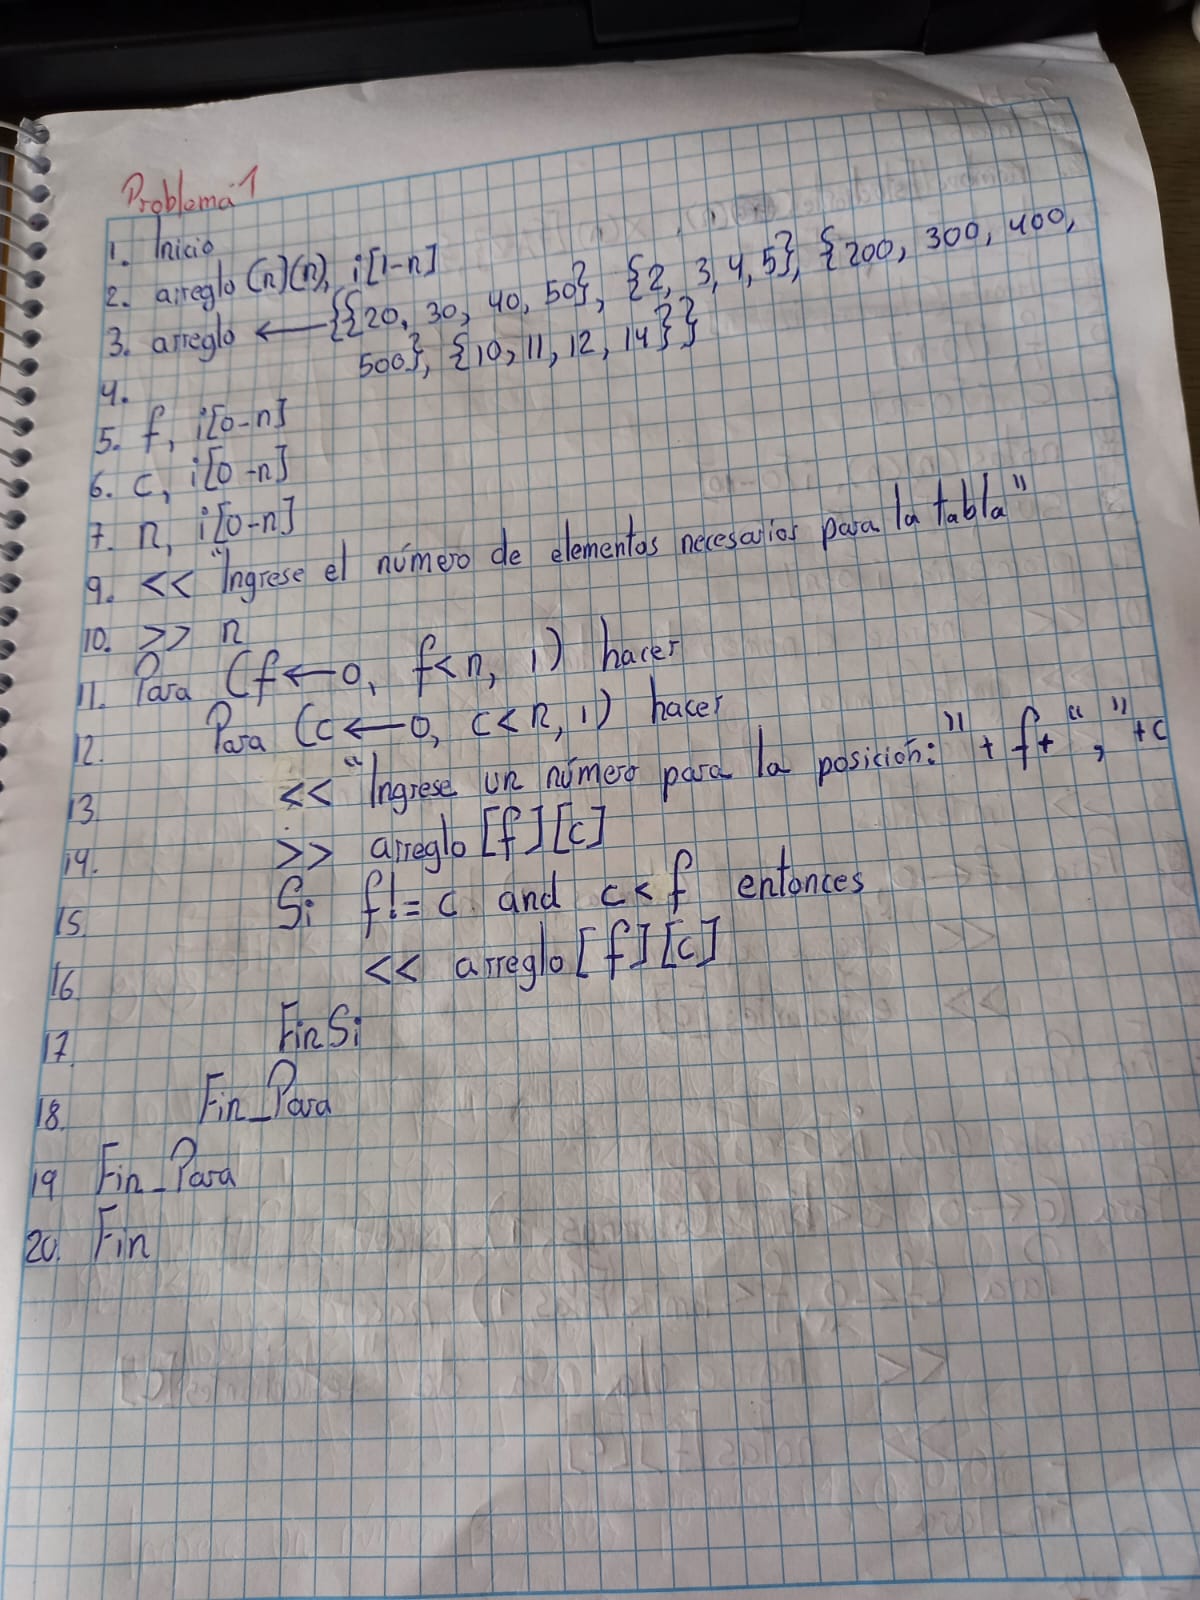 Problema 1
1. Inicio
2. arreglo (n)(n), i[1-n]
3. arreglo ← {{20, 30, 40, 50}, {2, 3, 4, 5}, {200, 300, 400,
500}, {10, 11, 12, 14}}
4.
5. f, i[0-n]
6. c, i[0-n]
7. n, i[0-n]
9. << "Ingrese el número de elementos necesarios para la tabla"
10. >> n
11. Para (f ← 0, f < n, 1) hacer
12. Para (c ← 0, c < n, 1) hacer
13. << "Ingrese un número para la posición: " + f + "," + c
14. >> arreglo [f][c]
15. Si f != c and c < f entonces
16 << arreglo [f][c]
17. Fin Si
18. Fin_Para
19 Fin_Para
20. Fin